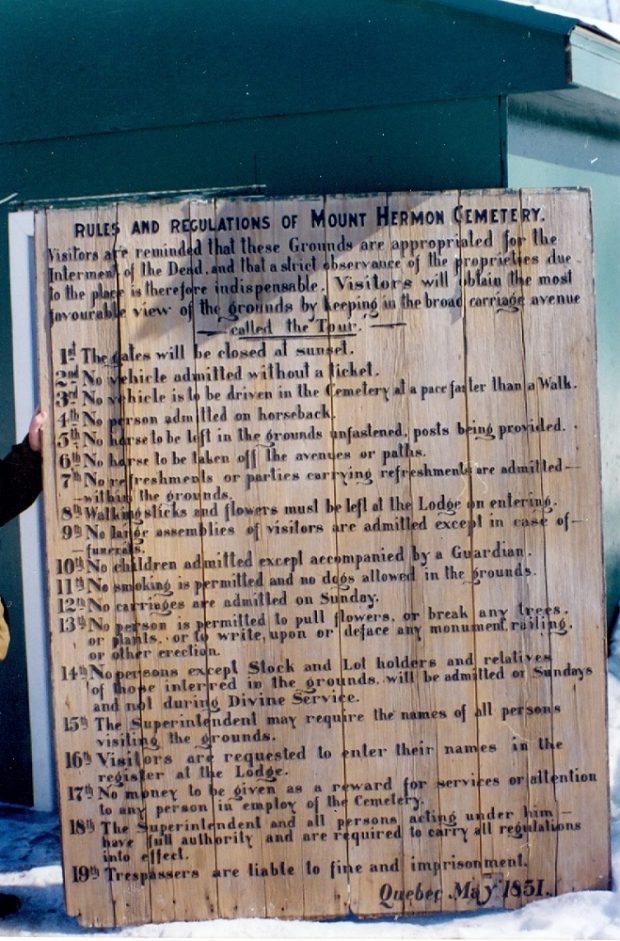 RULES AND REGULATIONS OF MOUNT HERMON CEMETERY.
Visitors are reminded that these Grounds are appropriated for the
Interment of the Dead, and that a strict observance of the proprieties due
to the place is therefore indispensable. Visitors will obtain the most
favourable view of the grounds by keeping in the broad carriage avenue
— called the Tour. —
1st The gates will be closed at sunset.
2nd No vehicle admitted without a ticket.
3rd No vehicle is to be driven in the Cemetery at a pace faster than a Walk.
4th No person admitted on horseback.
5th No horse to be left in the grounds unfastened, posts being provided.
6th No horse to be taken off the avenues or paths.
7th No refreshments or parties carrying refreshments are admitted —
— within the grounds.
8th Walking sticks and flowers must be left at the Lodge on entering.
9th No large assemblies of visitors are admitted except in case of —
— funerals.
10th No children admitted except accompanied by a Guardian.
11th No smoking is permitted and no dogs allowed in the grounds.
12th No carriages are admitted on Sunday.
13th No person is permitted to pull flowers, or break any trees,
or plants, or to write, upon or deface any monument, railing,
or other erection.
14th No persons except Stock and Lot holders and relatives
of those interred in the grounds, will be admitted on Sundays
and not during Divine Service.
15th The Superintendent may require the names of all persons
visiting the grounds.
16th Visitors are requested to enter their names in the
register at the Lodge.
17th No money to be given as a reward for services or attention
to any person in employ of the Cemetery.
18th The Superintendent and all persons acting under him —
have full authority and are required to carry all regulations
into effect.
19th Trespassers are liable to fine and imprisonment.
Quebec May 1851.